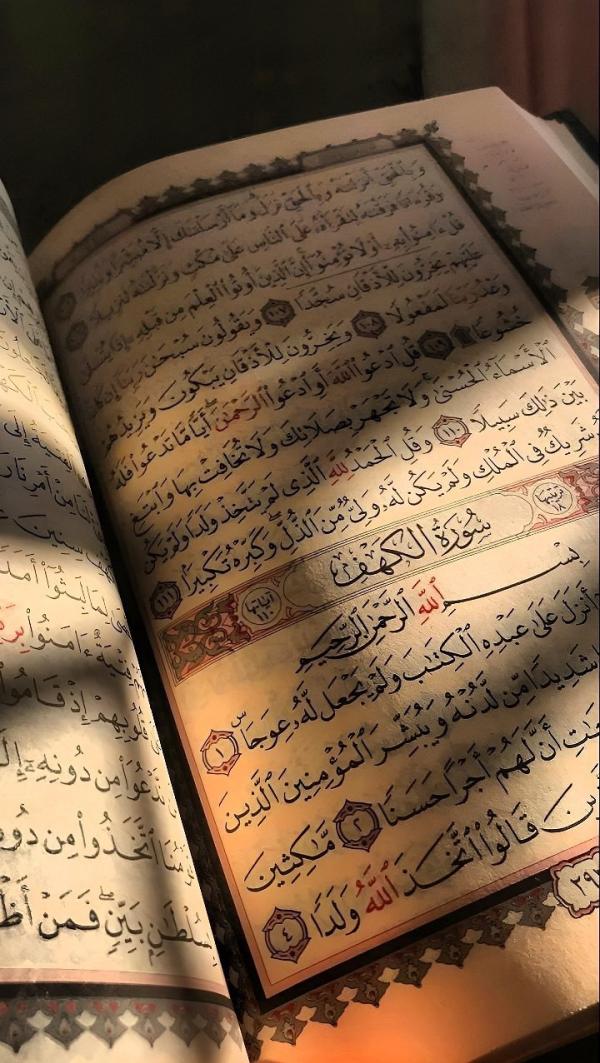 وَبِٱلْحَقِّ أَنزَلْنَٰهُ وَبِٱلْحَقِّ نَزَلَ وَمَآ أَرْسَلْنَٰكَ إِلَّا مُبَشِّرًا وَنَذِيرًا
وَقُرْءَانًا فَرَقْنَٰهُ لِتَقْرَأَهُۥ عَلَى ٱلنَّاسِ عَلَىٰ مُكْثٍ وَنَزَّلْنَٰهُ تَنزِيلًا
قُلْ ءَامِنُوا۟ بِهِۦٓ أَوْ لَا تُؤْمِنُوٓا۟ إِنَّ ٱلَّذِينَ أُوتُوا۟ ٱلْعِلْمَ مِن قَبْلِهِۦٓ إِذَا يُتْلَىٰ
عَلَيْهِمْ يَخِرُّونَ لِلْأَذْقَانِ سُجَّدًا ١٠٧ وَيَقُولُونَ سُبْحَٰنَ رَبِّنَآ إِن كَانَ
وَعْدُ رَبِّنَا لَمَفْعُولًا ١٠٨ وَيَخِرُّونَ لِلْأَذْقَانِ يَبْكُونَ وَيَزِيدُهُمْ
خُشُوعًا ١٠٩ قُلِ ٱدْعُوا۟ ٱللَّهَ أَوِ ٱدْعُوا۟ ٱلرَّحْمَٰنَ أَيًّا مَّا تَدْعُوا۟ فَلَهُ
ٱلْأَسْمَآءُ ٱلْحُسْنَىٰ وَلَا تَجْهَرْ بِصَلَاتِكَ وَلَا تُخَافِتْ بِهَا وَٱبْتَغِ
بَيْنَ ذَٰلِكَ سَبِيلًا ١١٠ وَقُلِ ٱلْحَمْدُ لِلَّهِ ٱلَّذِى لَمْ يَتَّخِذْ وَلَدًا وَلَمْ يَكُن
شَرِيكٌ فِى ٱلْمُلْكِ وَلَمْ يَكُن لَّهُۥ وَلِىٌّ مِّنَ ٱلذُّلِّ وَكَبِّرْهُ تَكْبِيرًۢا ١١١
سُورَةُ ٱلْكَهْفِ
بِسْمِ ٱللَّهِ ٱلرَّحْمَٰنِ ٱلرَّحِيمِ
أَنزَلَ عَلَىٰ عَبْدِهِ ٱلْكِتَٰبَ وَلَمْ يَجْعَل لَّهُۥ عِوَجَا ١
شَدِيدًا مِّن لَّدُنْهُ وَيُبَشِّرَ ٱلْمُؤْمِنِينَ ٱلَّذِينَ
أَنَّ لَهُمْ أَجْرًا حَسَنًا ٢ مَّٰكِثِينَ
قَالُوا۟ ٱتَّخَذَ ٱللَّهُ وَلَدًا ٤
٢٩٣
سِنِينَ
لِمَا لَبِثُوٓا۟ أَمَدًا
فِتْيَةٌ ءَامَنُوا۟
قُلُوبِهِمْ إِذْ قَامُوا۟
مِن دُونِهِۦٓ إِلَٰهًا
ٱتَّخَذُوا۟ مِن دُونِهِۦٓ
بِسُلْطَٰنٍۭ بَيِّنٍ فَمَنْ أَظْلَمُ